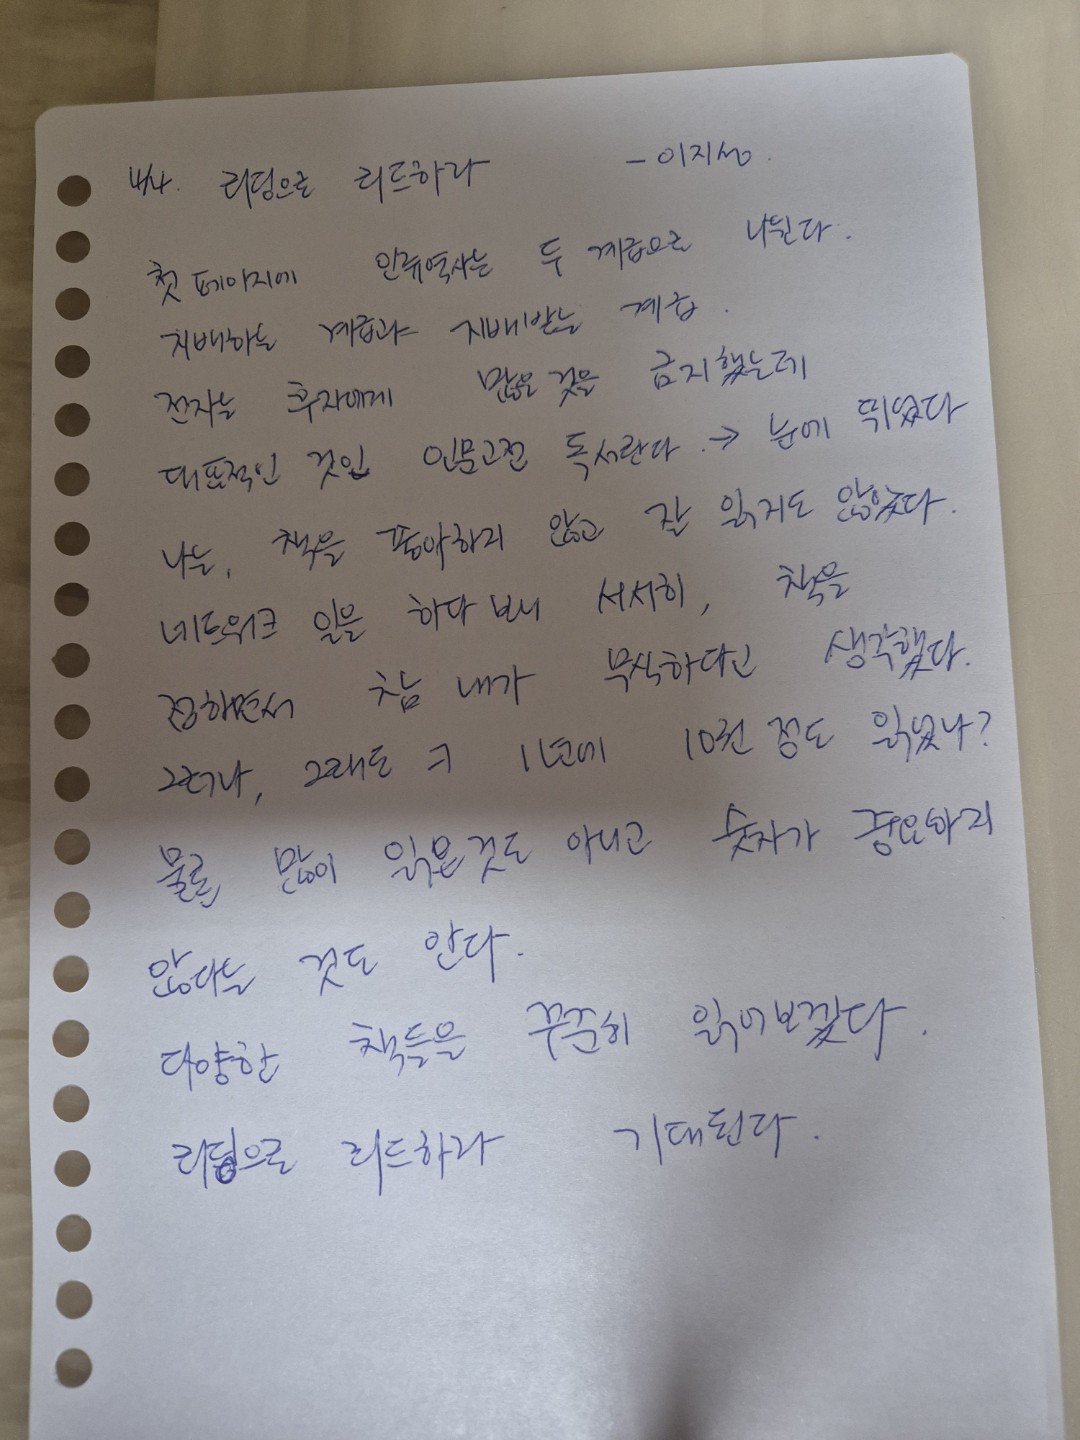 4/4. 리딩으로 리드하라 - 이지성.
첫 페이지에 인류역사는 두 계급으로 나뉜다.
지배하는 계급과 지배받는 계급.
전자는 후자에게 많은것을 금지했는데
대표적인 것인 인문고전 독서란다. → 눈에 띄었다
나는, 책을 좋아하지 않고 잘 읽지도 않았다.
네트워크 일을 하다보니 서서히, 책을
접하면서 참 내가 무식하다고 생각했다.
그러나, 그래도 1년에 10권 정도 읽었나?
물론, 많이 읽은것도 아니고 숫자가 중요하지
않다는 것도 안다.
다양한 책들을 꾸준히 읽어보겠다.
리딩으로 리드하라 기대된다.